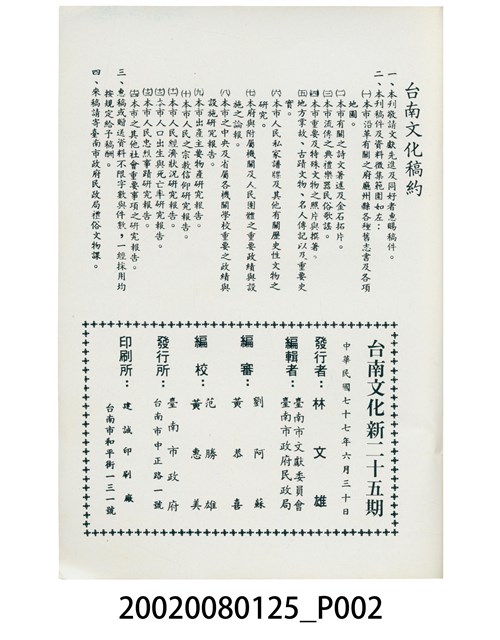 台南文化稿約
一、本刊敬請文獻先進及同好者惠賜稿件。
二、本刊稿件及資料徵集範圍如左：
㈠本市沿革有關之府廳州縣各種舊志書及各項
地圖。
㈡本市有關之詩文著述及金石拓片。
㈢本市流傳之典禮樂器民俗歌謠。
㈣本市重要及特殊文物之照片與撰著。
㈤地方掌故、古蹟文物、名人傳記以及重要史
實。
㈥本市人民私家譜牒及其他有關歷史性文物之
研究。
㈦本府與附屬機關及人民團體之重要政績與設
施之論報。
㈧本市之中央及省屬各機關學校重要之政績與
設施研究報告。
㈨本市出產主要物產研究報告。
㈩本市人民之宗教信仰研究報告。
本市人民經濟狀況研究報告。
本市人口出生與死亡率研究報告。
本市人民忠烈事蹟研究報告。
本市之其他社會重要事項之研究報告。
三、惠稿或贈送資料不限字數與件數，一經採用均
按規定給予稿酬。
四、來稿請寄臺南市政府民政局禮俗文物課。
台南文化新二十五期
中華民國七十七年六月三十日
發行者：林文雄
編輯者：臺南市文獻委員會
臺南市政府民政局
編審：劉阿蘇
黃恭喜
編校：范勝雄
黃惠美
發行所：臺南市政府
台南市中正路一號
印刷所：建誠印刷廠
台南市和平街一三一號
20020080125_P002